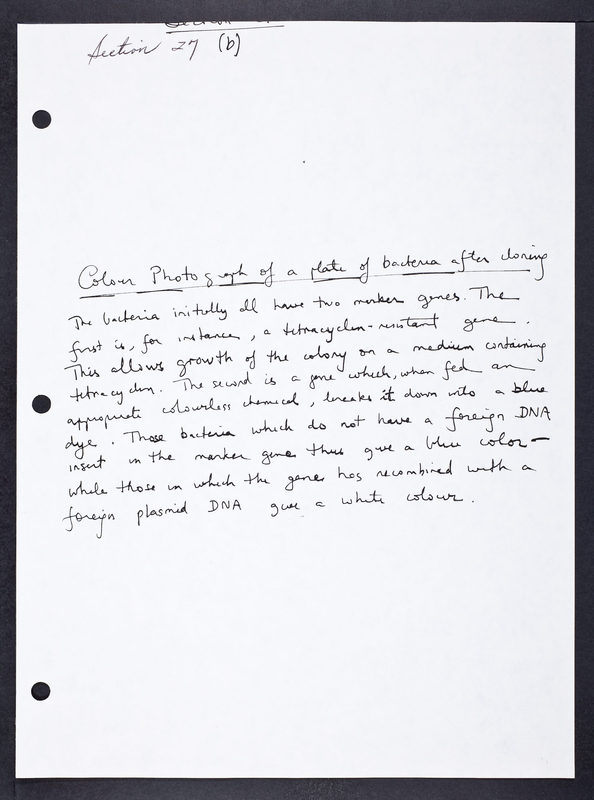 Section 27 (b)
Colour Photograph of a plate of bacteria after cloning
The bacteria initially all have two marker genes. The
first is, for instance, a tetracyclin-resistant gene.
This allows growth of the colony on a medium containing
tetracyclin. The second is a gene which, when fed an
appropriate colourless chemical, breaks it down into a blue
dye. Those bacteria which do not have a foreign DNA
insert in the marker genes thus give a blue color—
while those in which the genes has recombined with a
foreign plasmid DNA give a white colour.